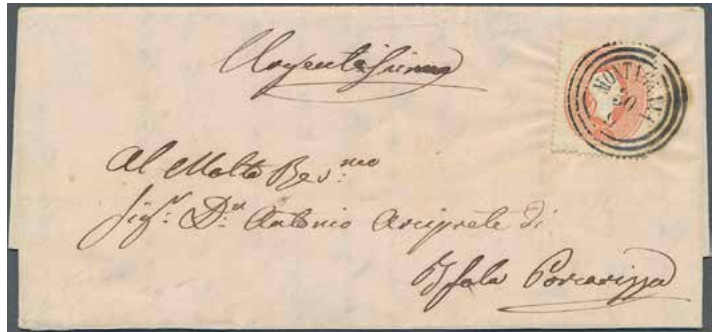 Urgentissima
MONTAGNANA
30
Al Molto Rev.mo
Sigr. Dn. Antonio Arciprete di
Isola Porcarizza